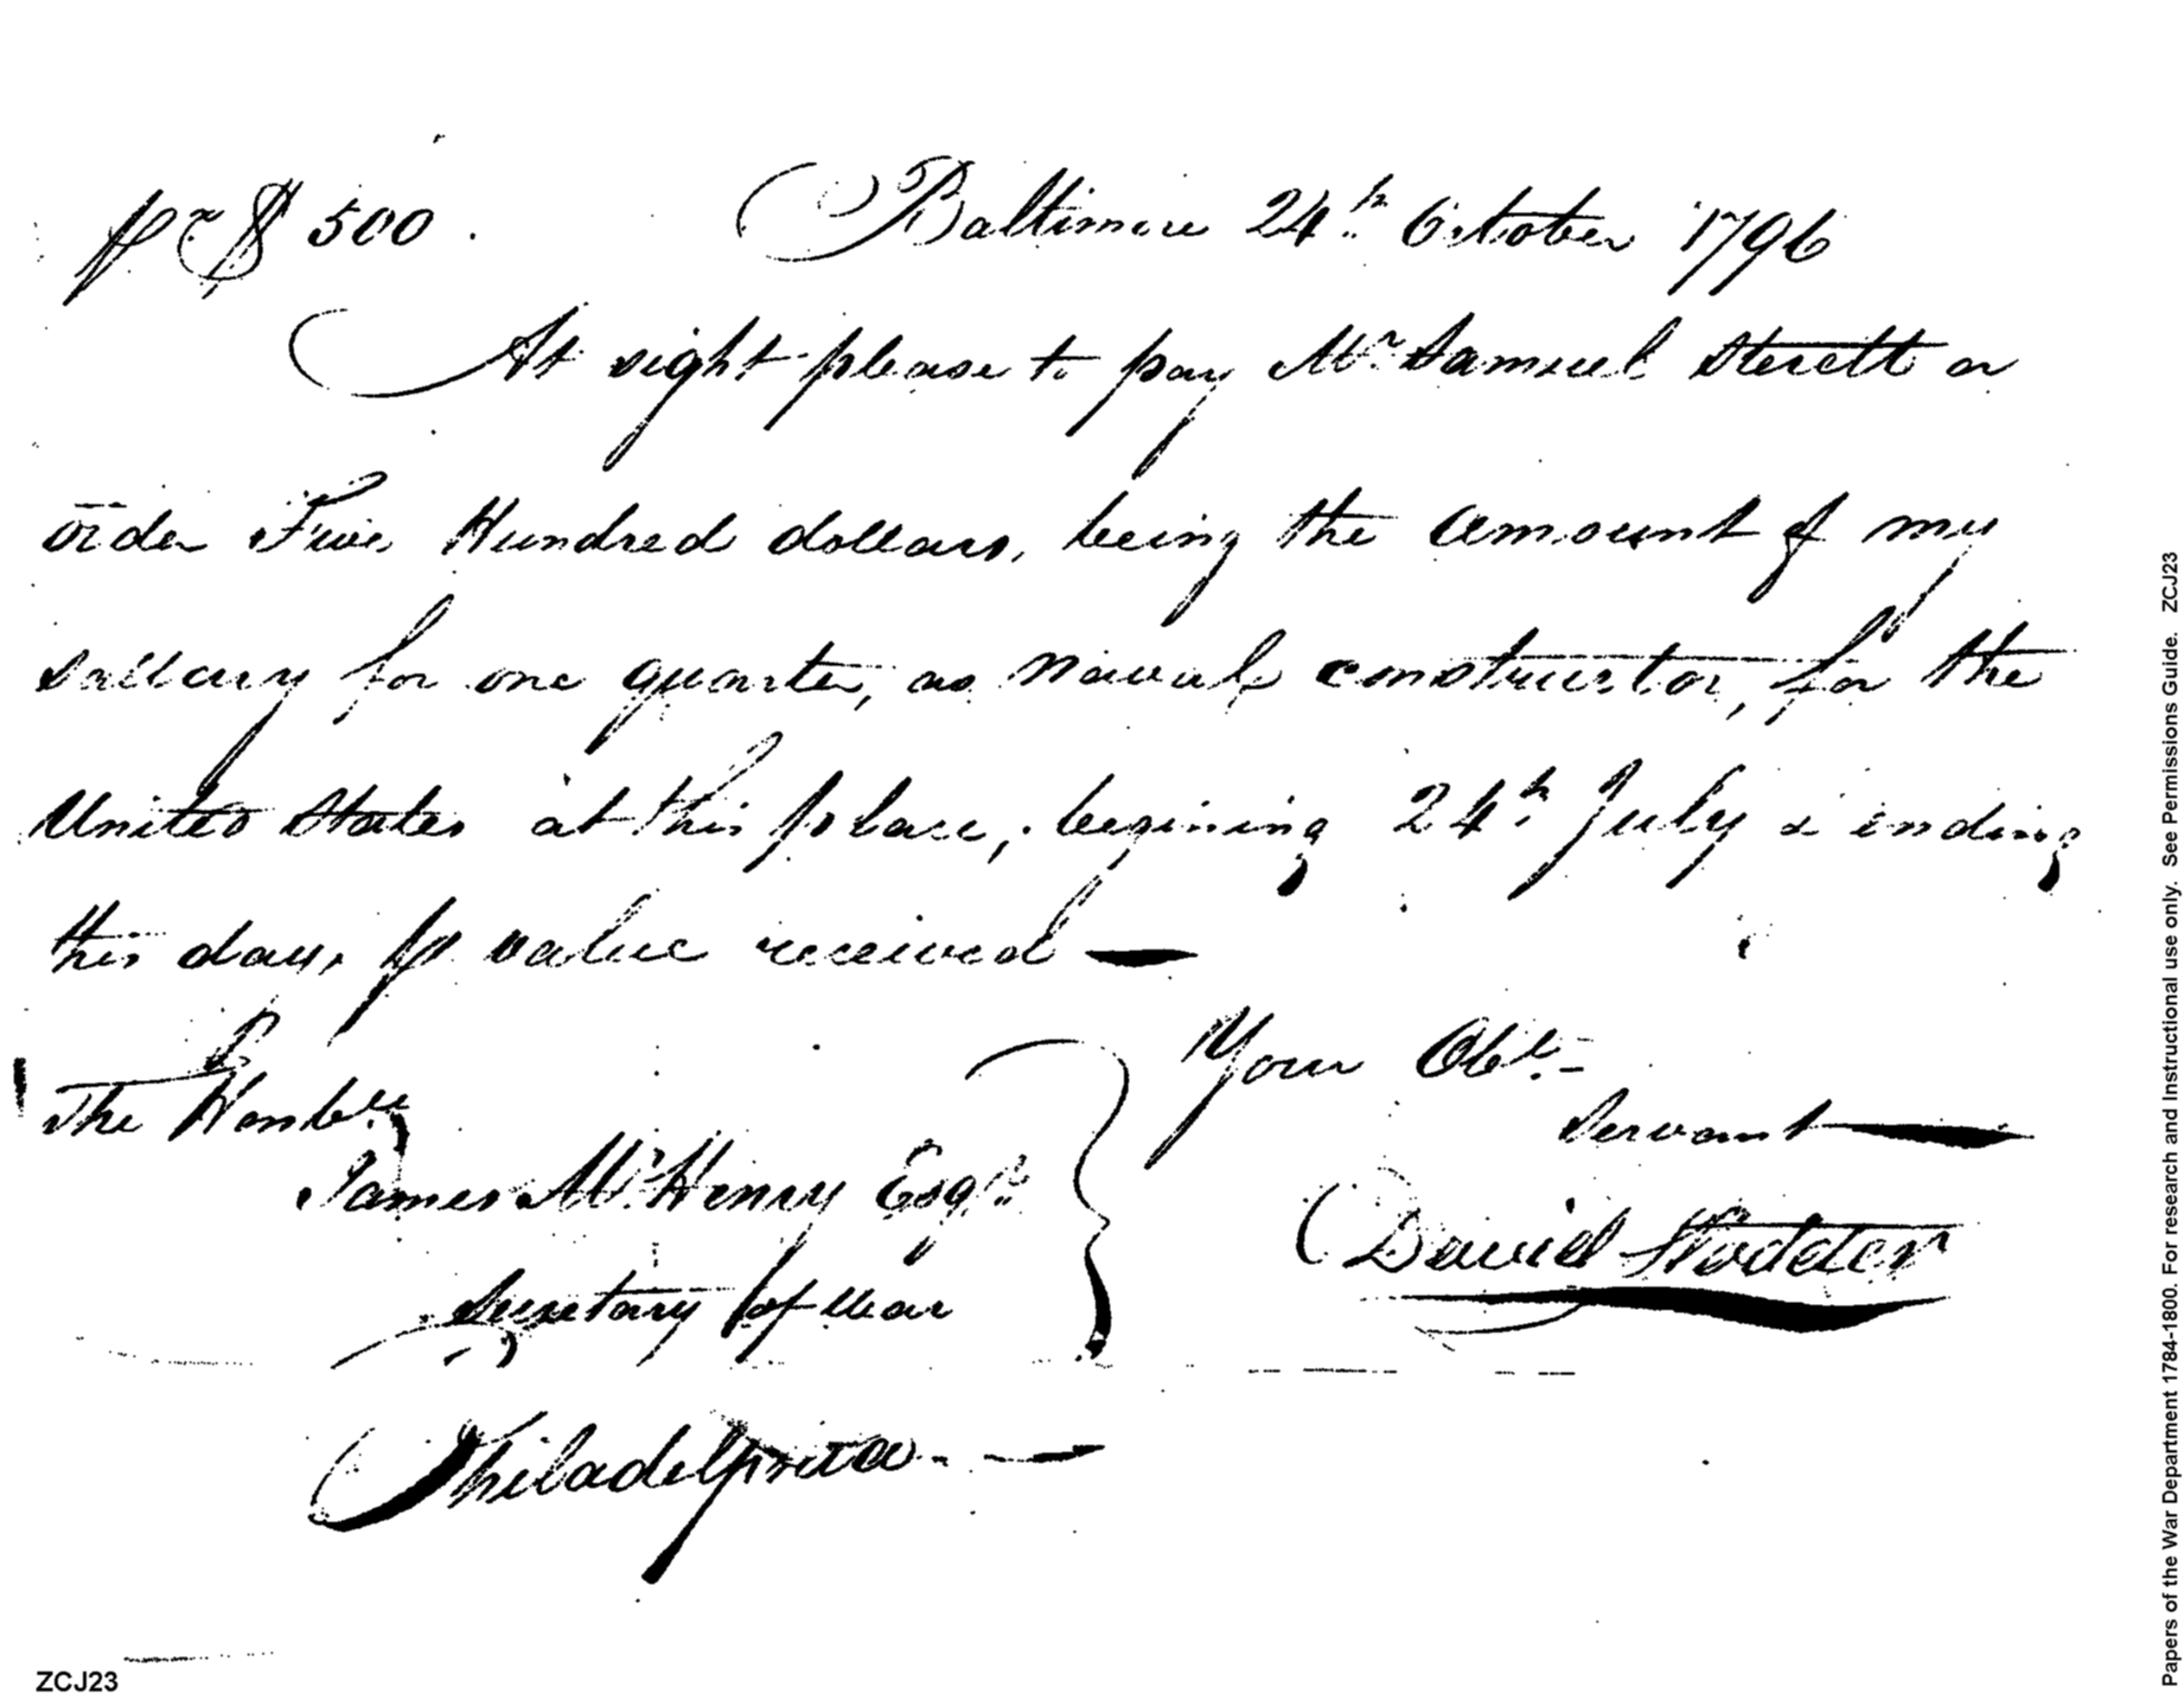 pr $500. Baltimore 24.h October 1796
At sight please to pay Mr. Samuel Sterett or
order Five Hundred dollars, being the amount of my
sallary for one quarter, as naval constructor, for the
United States at this place, begining 24.h July & ending
this day, for value received —
Your Obt. —
Servant —
The Honble.
James McHenry Esqr.
Secretary of War
David Stodder
Philadelphia — —
ZCJ23
Papers of the War Department 1784-1800. For research and Instructional use only. See Permissions Guide. ZCJ23